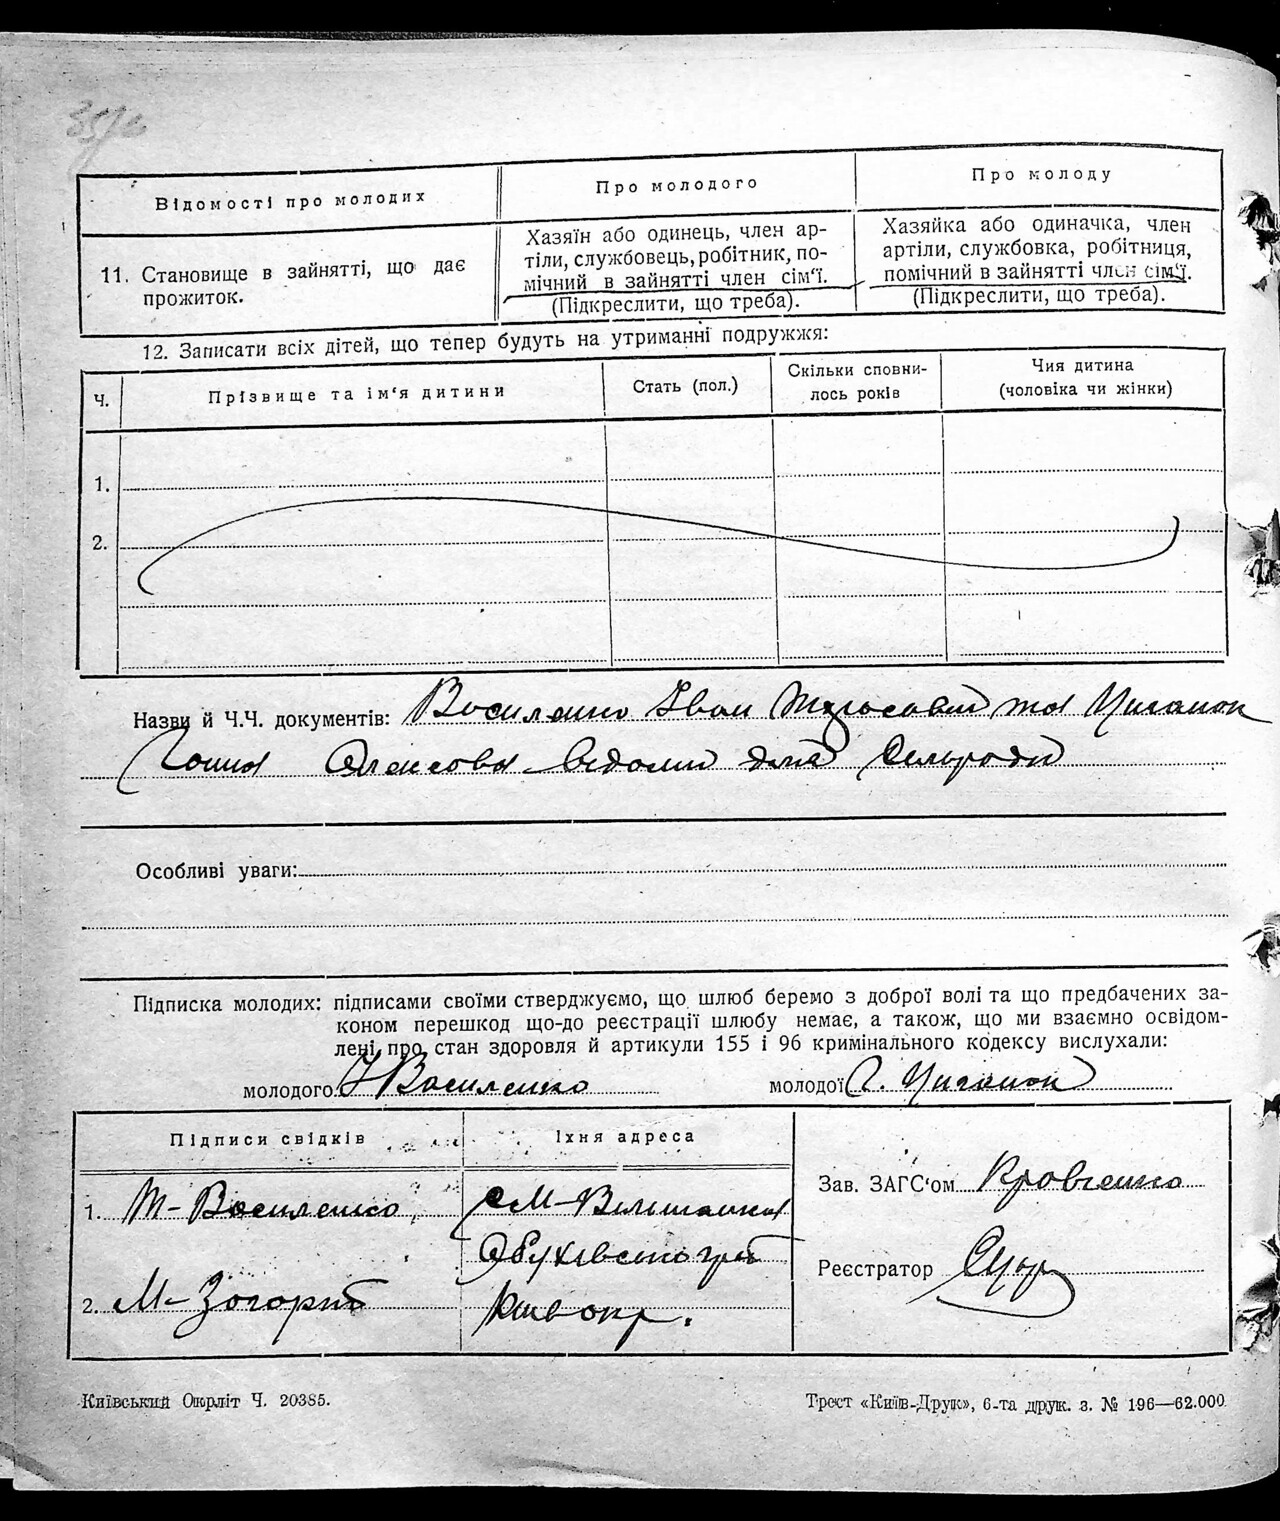 Відомості про молодих
Про молодого
Про молоду
11. Становище в зайнятті, що дає
прожиток.
Хазяїн або одинець, член ар-
тіли, службовець, робітник, по-
мічний в зайнятті член сім'ї.
(Підкреслити, що треба).
Хазяйка або одиначка, член
артіли, службовка, робітниця,
помічний в зайнятті член сім'ї.
(Підкреслити, що треба).
12. Записати всіх дітей, що тепер будуть на утриманні подружжя:
Ч.
Прізвище та ім'я дитини
Стать (пол.)
Скільки сповни-
лось років
Чия дитина
(чоловіка чи жінки)
1.
2.
Назви й Ч.Ч. документів: Василенко Іван Тарасовий та Циганок
Ганна Олексова відомий для Сільради
Особливі уваги:
Підписка молодих: підписами своїми стверджуємо, що шлюб беремо з доброї волі та що предбачених за-
коном перешкод що-до реєстрації шлюбу немає, а також, що ми взаємно освідом-
лені про стан здоровля й артикули 155 і 96 кримінального кодексу вислухали:
молодого І Василенко молодої Г. Циганок
Підписи свідків
Їхня адреса
1. Т-Василенко
с М-Вільшанка
Обухівського
2. М-
Київ окр.
Зав. ЗАГС'ом Кравченко
Реєстратор
Київський Окрліт Ч. 20385.
Трест «Київ-Друк», 6-та друк. з. № 196—62.000